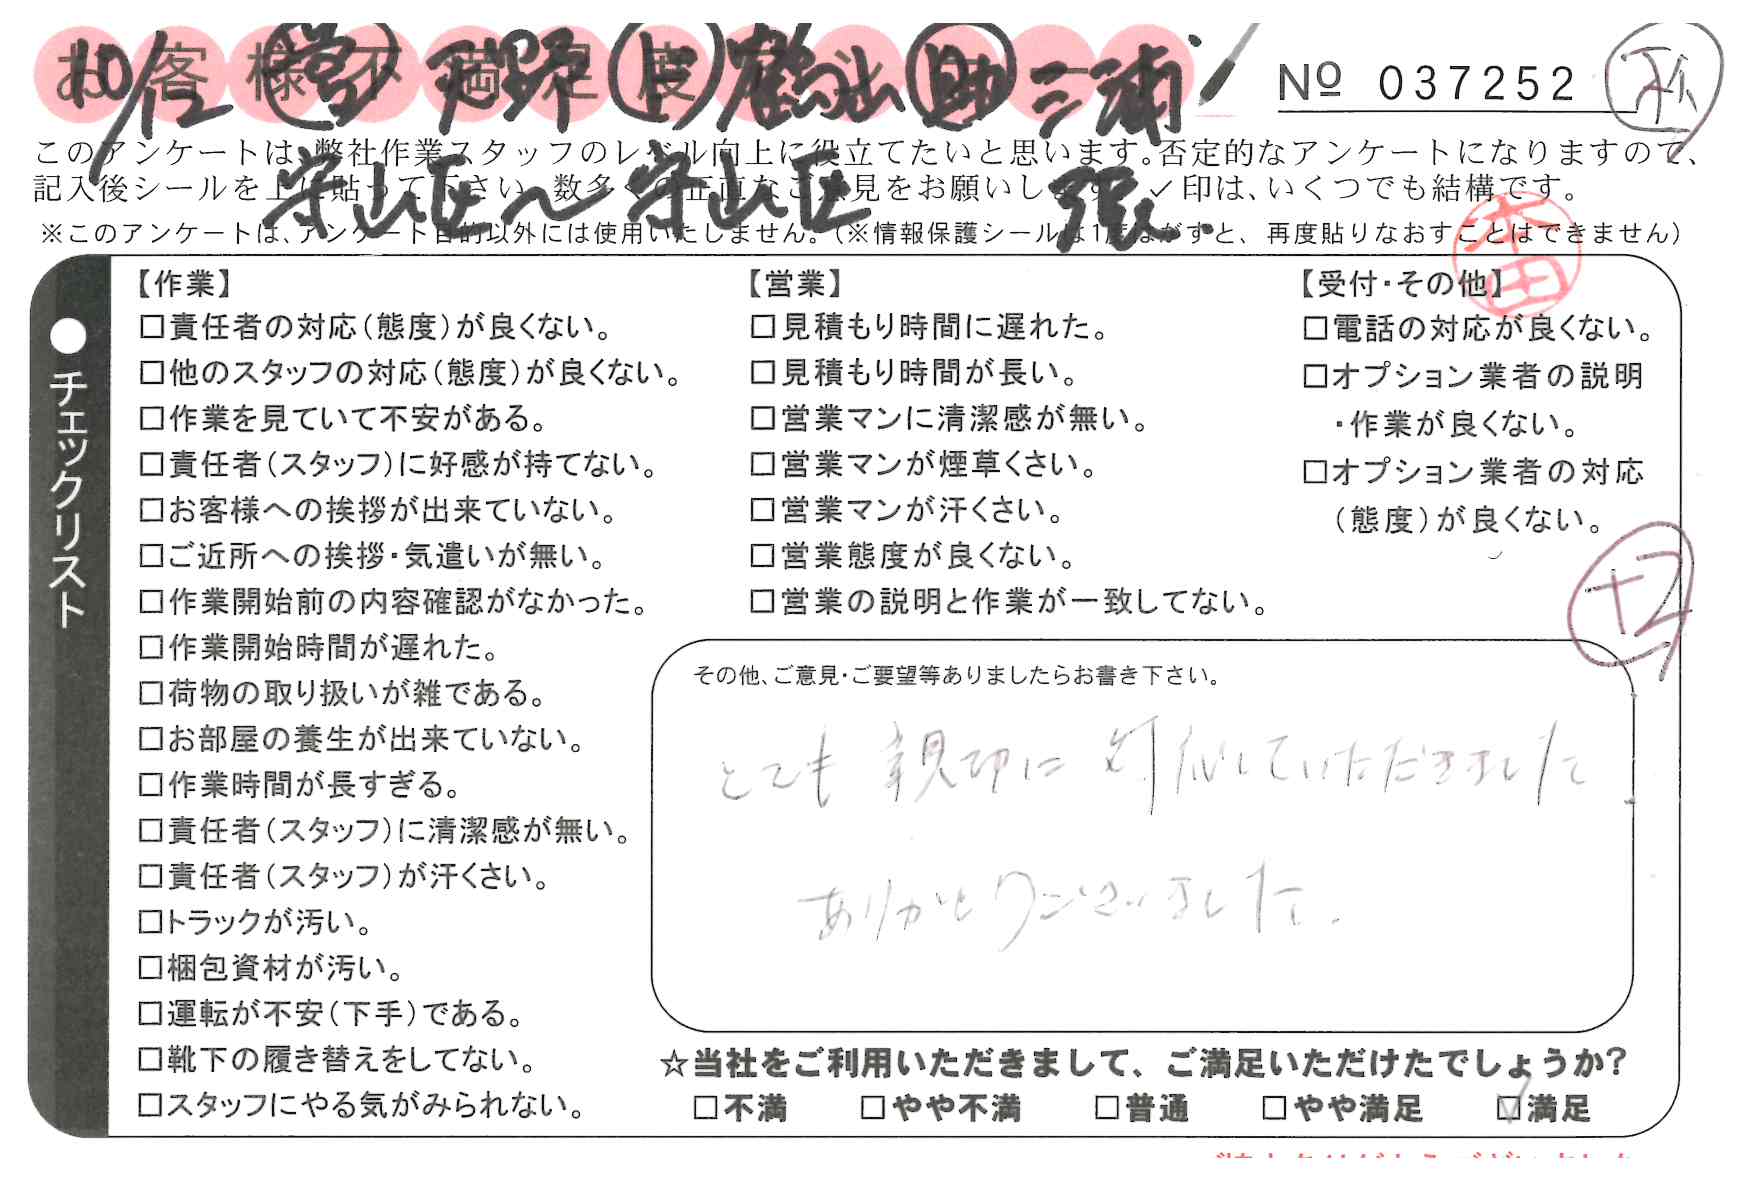 お客様不満足度アンケート
10/12 営 平野 ド 鶴山 助 三浦
№ 037252
このアンケートは、弊社作業スタッフのレベル向上に役立てたいと思います。否定的なアンケートになりますので、
記入後シールを上に貼って下さい。数多くの正直なご意見をお願いします。✓印は、いくつでも結構です。
守山区〜守山区
※このアンケートは、アンケート目的以外には使用いたしません。(※情報保護シールは1度はがすと、再度貼りなおすことはできません)
本田
●チェックリスト
【作業】
□責任者の対応(態度)が良くない。
□他のスタッフの対応(態度)が良くない。
□作業を見ていて不安がある。
□責任者(スタッフ)に好感が持てない。
□お客様への挨拶が出来ていない。
□ご近所への挨拶・気遣いが無い。
□作業開始前の内容確認がなかった。
□作業開始時間が遅れた。
□荷物の取り扱いが雑である。
□お部屋の養生が出来ていない。
□作業時間が長すぎる。
□責任者(スタッフ)に清潔感が無い。
□責任者(スタッフ)が汗くさい。
□トラックが汚い。
□梱包資材が汚い。
□運転が不安(下手)である。
□靴下の履き替えをしてない。
□スタッフにやる気がみられない。
【営業】
□見積もり時間に遅れた。
□見積もり時間が長い。
□営業マンに清潔感が無い。
□営業マンが煙草くさい。
□営業マンが汗くさい。
□営業態度が良くない。
□営業の説明と作業が一致してない。
【受付・その他】
□電話の対応が良くない。
□オプション業者の説明
・作業が良くない。
□オプション業者の対応
(態度)が良くない。
+2
その他、ご意見・ご要望等ありましたらお書き下さい。
とても親切に対応していただきました
ありがとうございました。
☆当社をご利用いただきまして、ご満足いただけたでしょうか?
□不満 □やや不満 □普通 □やや満足 ☑満足